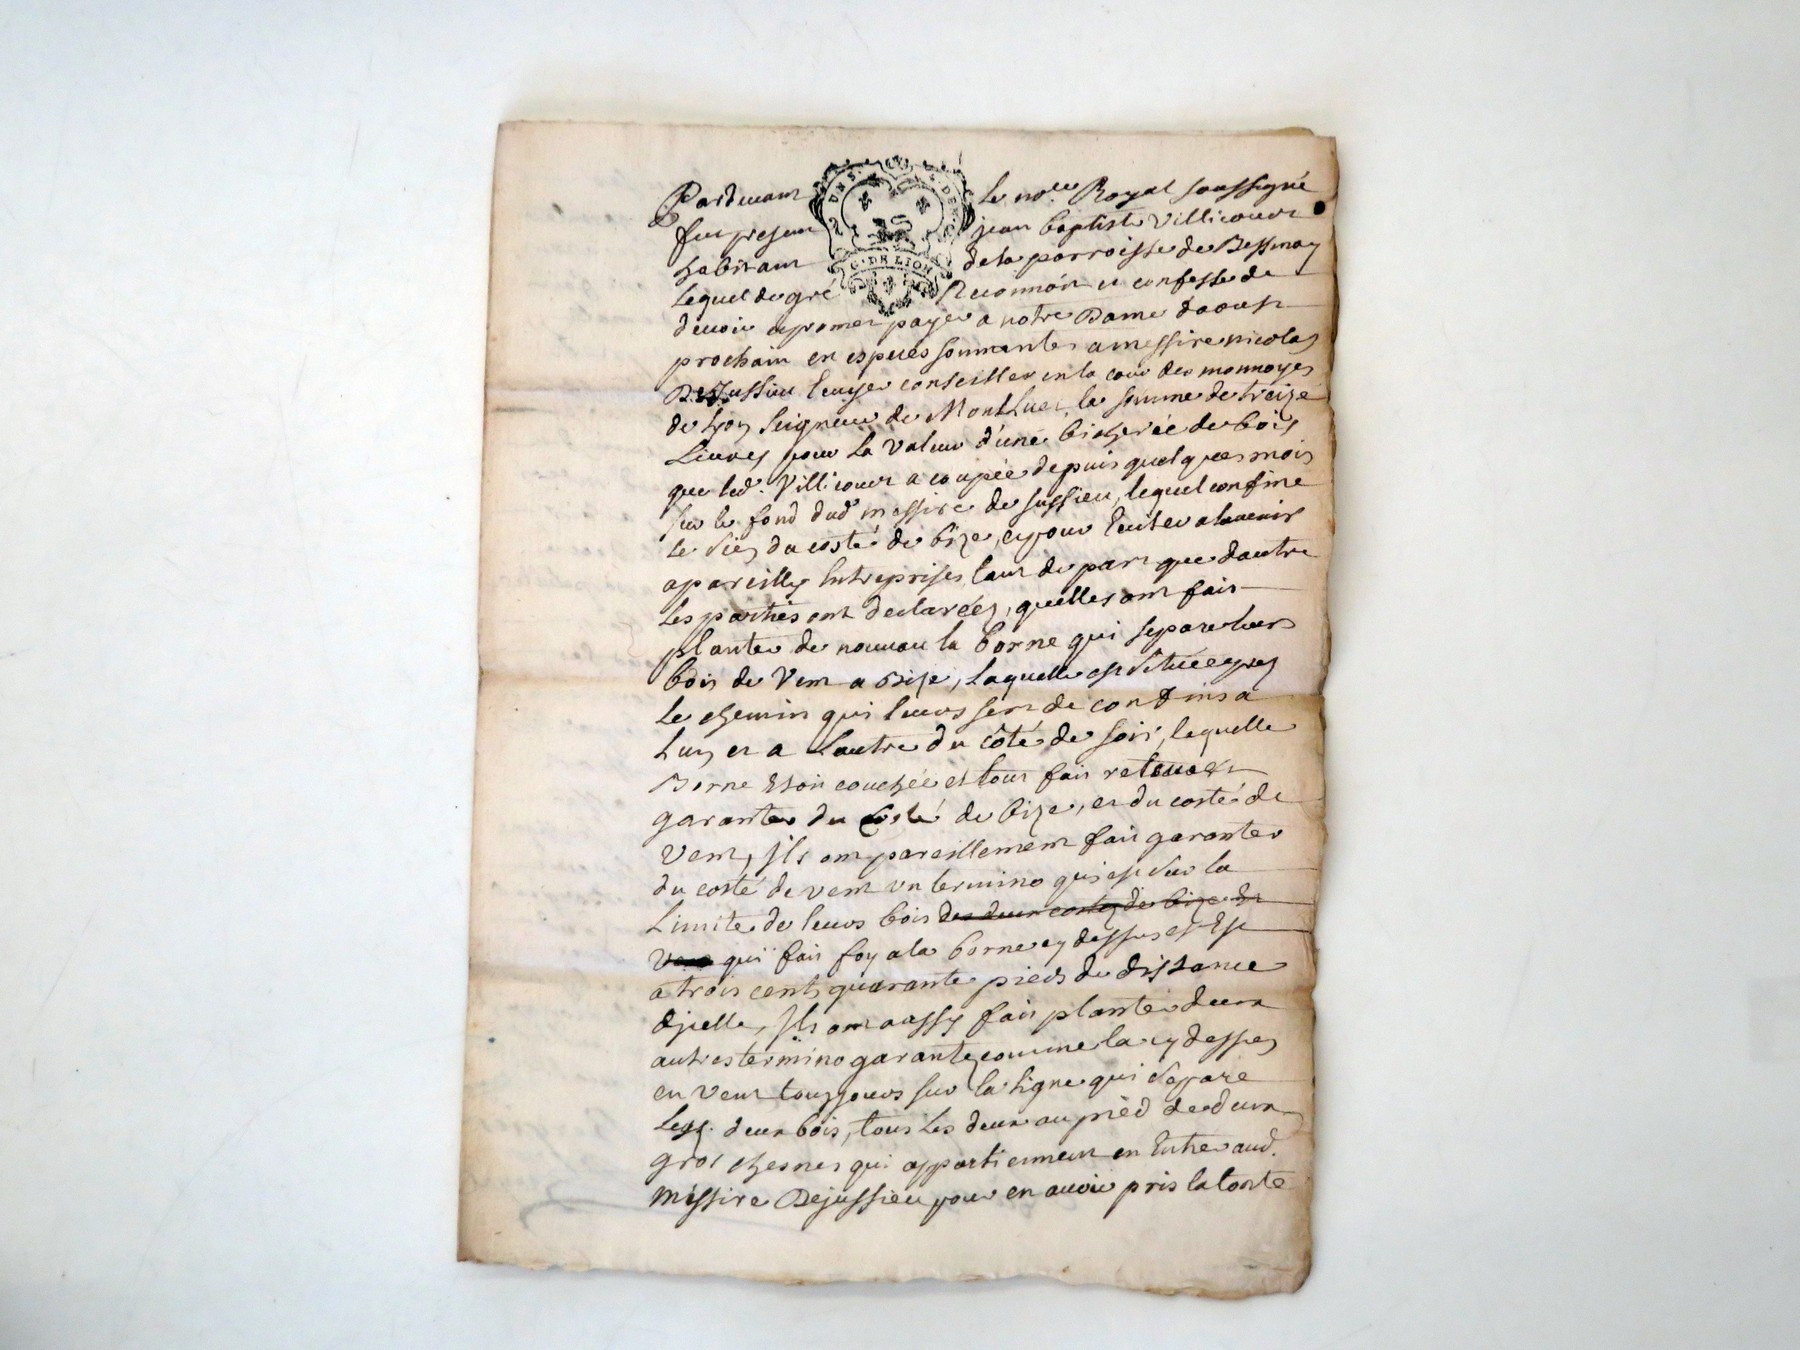 Pardevant le no.re Royal soussigné
fut present jean baptiste Villicourt
habitant de la parroisse de Bessenay
Lequel de gré Reconnoit et confesse de
devoir et promet payer a notre Dame d'aoust
prochain en especes sonnantes a messire nicolas
DeJussieu Ecuyer conseiller en la cour des monnoyes
de Lyon Seigneur de Montluel, la somme de treize
Livres pour la valeur d'une bicherée de bois
que led. Villicourt a coupée depuis quelques mois
sur le fond dud messire de Jussieu, lequel confine
le sien du costé de bize, et pour Eviter a lavenir
a pareilles Entreprises tant de part que dautre
les parties ont declarées, quelles ont fait
planter de nouveau la borne qui separe leurs
bois de Vent a Bize, Laquelle est située
le chemin qui leurs sert de confins a
Lun et a Lautre du côté de soir, lequelle
Borne Etoit couchée et lont fait relever et
garanter du costé de bize, et du costé de
Vent, Ils ont pareillement fait garanter
du costé de vent un termino qui est sur la
Limite de leurs bois des deux costez de bize et de
Vent qui fait foy a la borne cy dessus et Est
a trois cents quarante pieds de distance
d'jcelle, Ils ont aussy fait planter deux
autres termino garantes comme la cy dessus
en Vent toujours sur la Ligne qui separe
Lesd. deux bois, tous Les deux au pièd de deux
gros chesnes qui appartiennent en Entier aud.
messire Dejussieu pour en avoir pris la tonte
G. DE LION